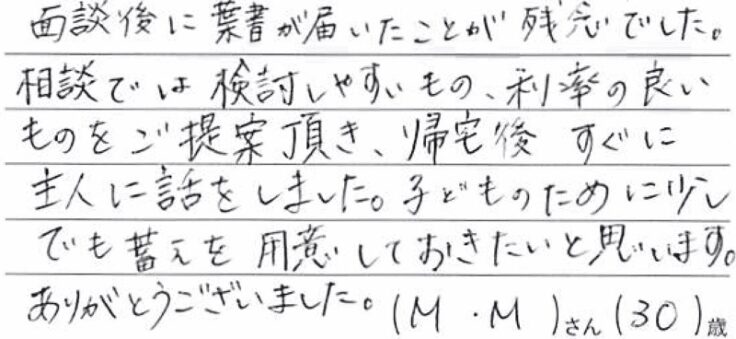 面談後に葉書が届いたことが残念でした。
相談では検討しやすいもの、利率の良い
ものをご提案頂き、帰宅後 すぐに
主人に話をしました。子どものために少し
でも蓄えを用意しておきたいと思います。
ありがとうございました。(M・M)さん(30)歳